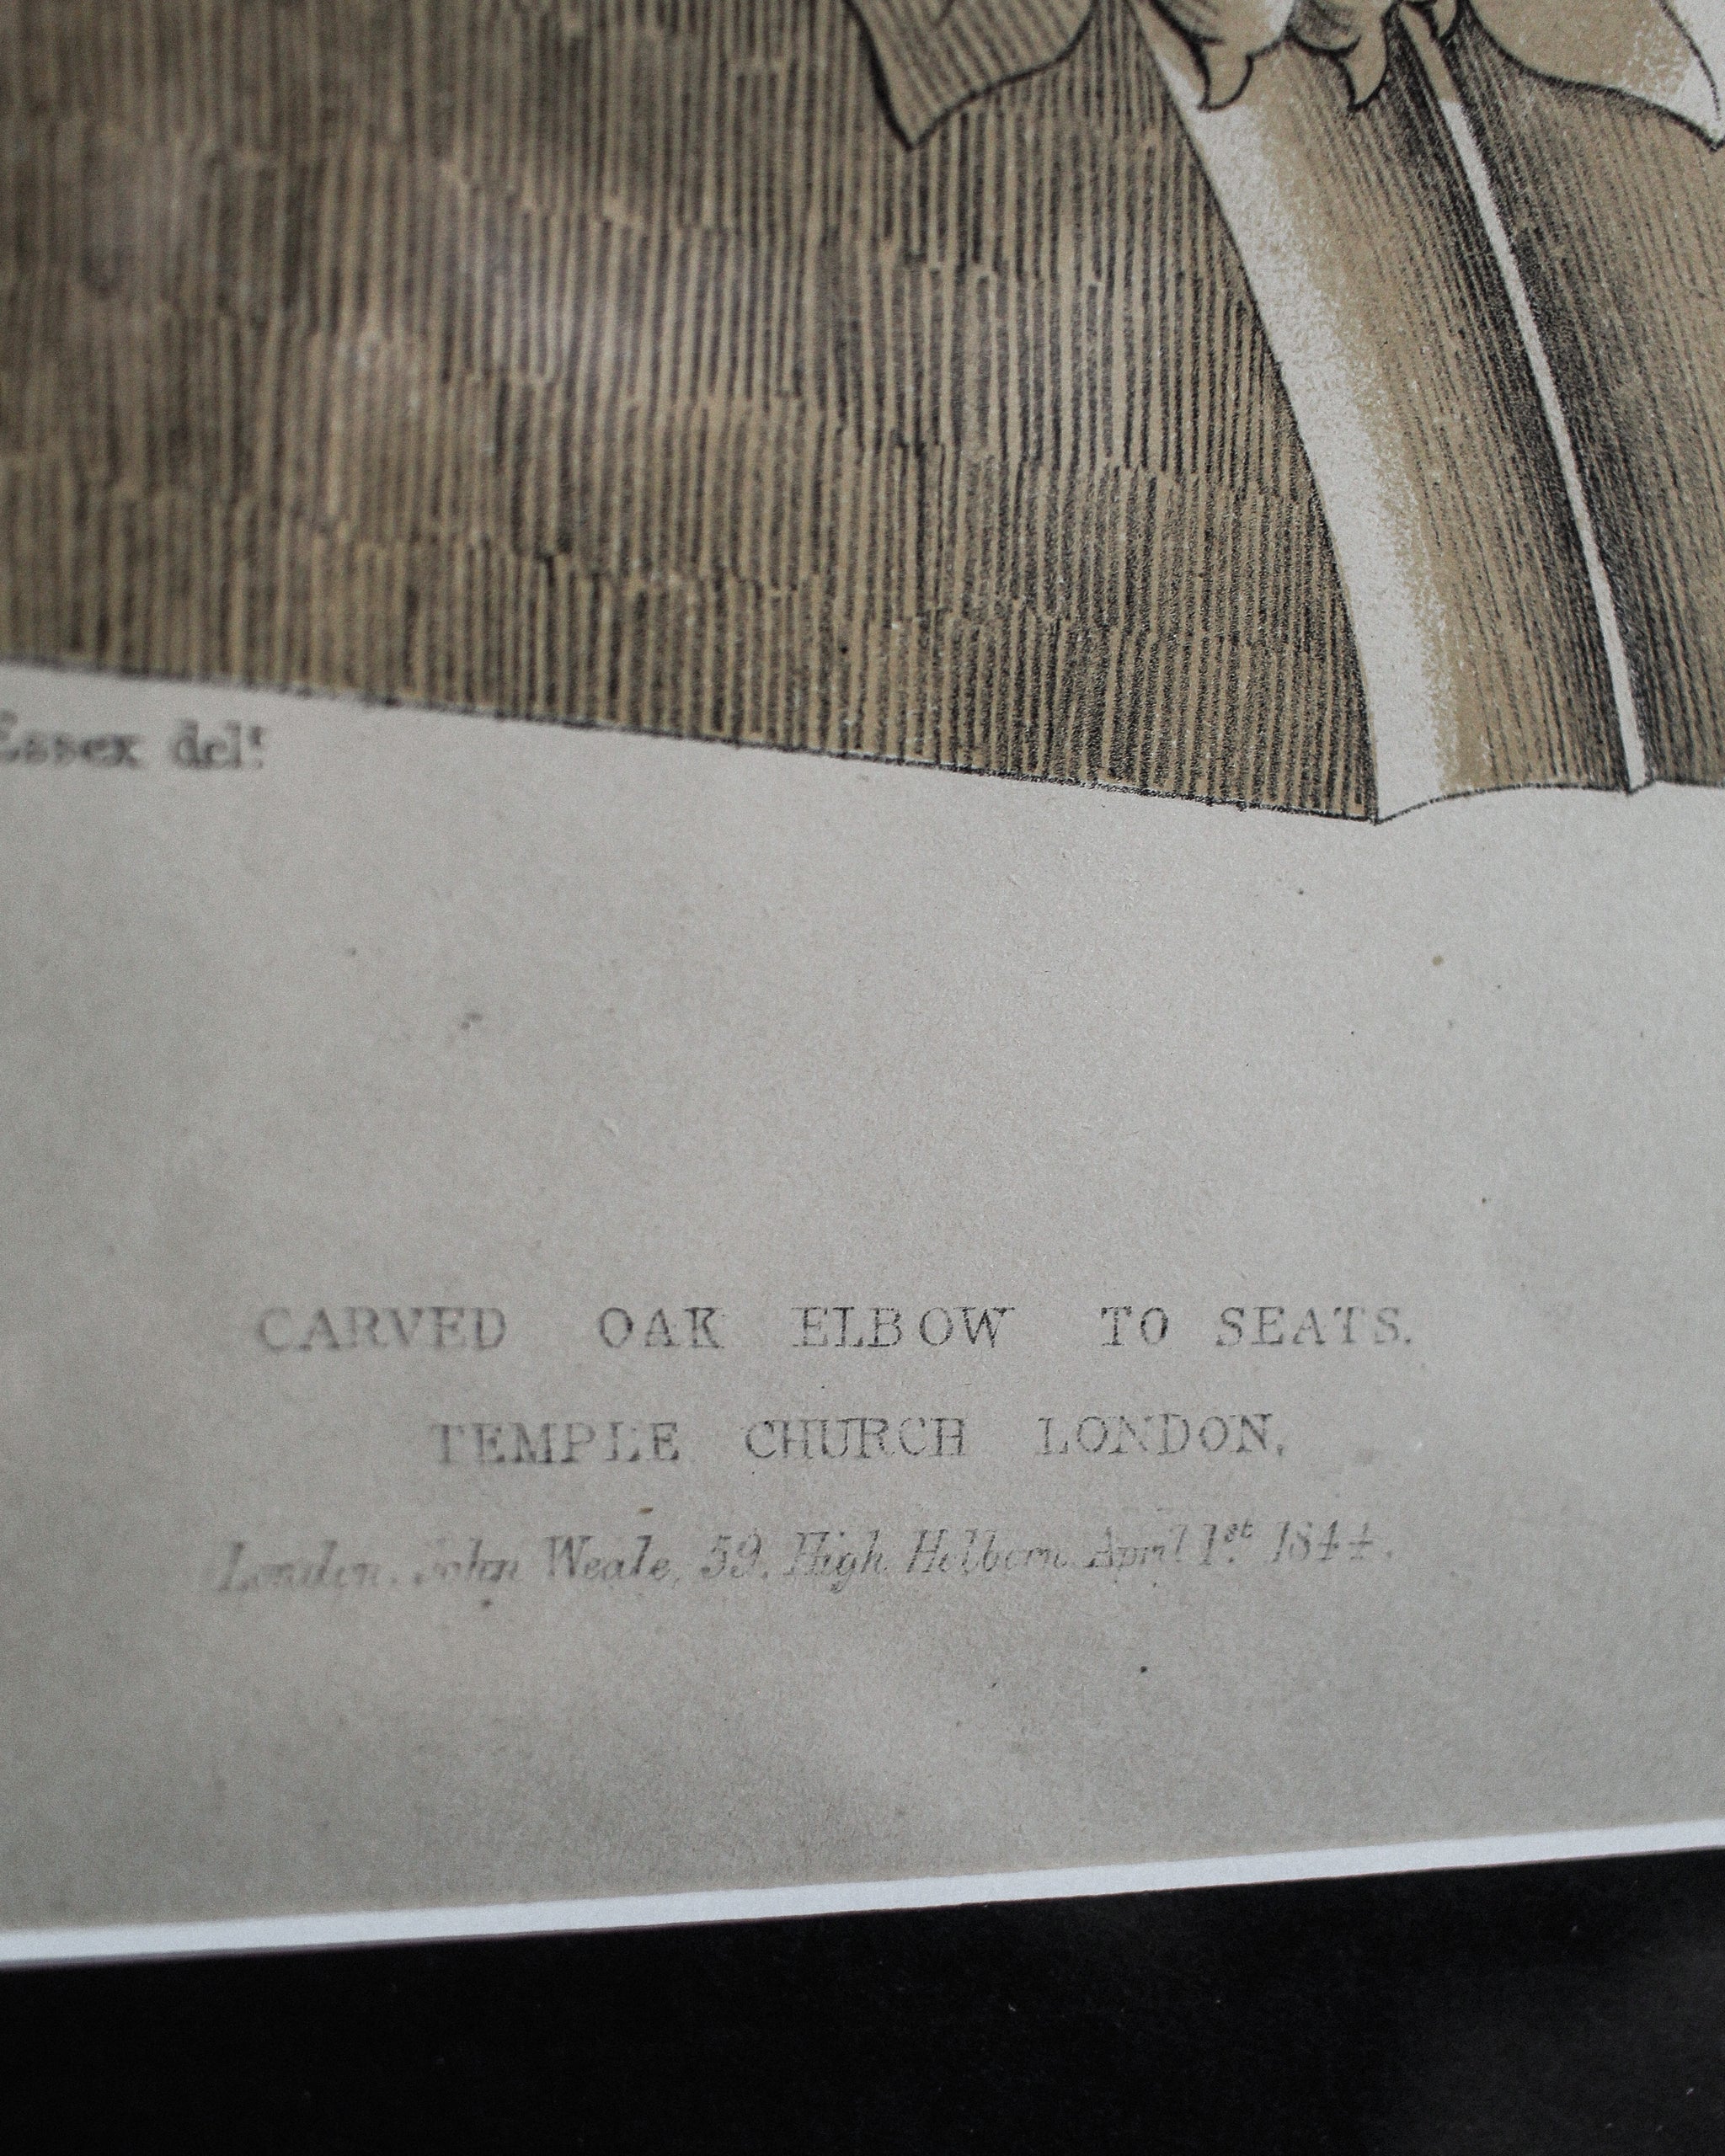 Essex delt
CARVED OAK ELBOW TO SEATS.
TEMPLE CHURCH LONDON,
London. John Weale, 59, High Holborn April 1st 1844.